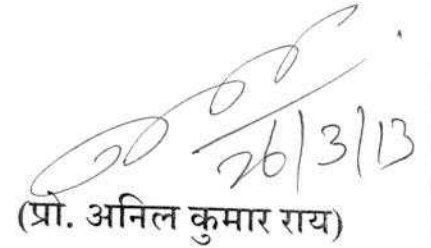 26/3/13
(प्रो. अनिल कुमार राय)